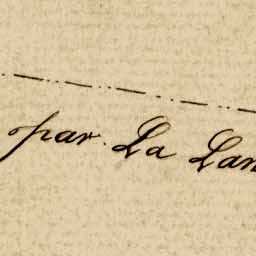 par. La Lan